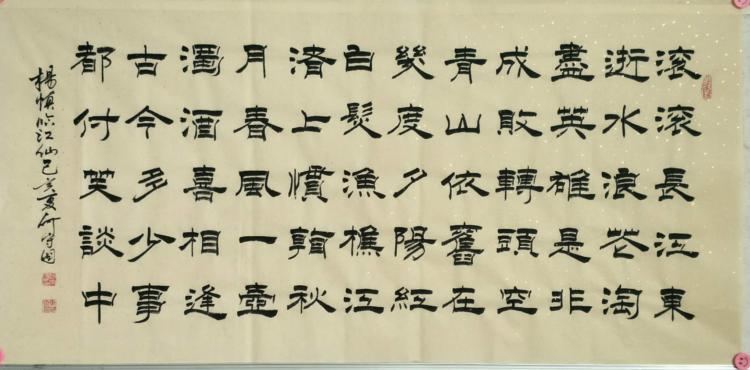 滚滚長江東
逝水浪花淘
盡英雄是非
成敗轉頭空
青山依舊在
幾度夕陽紅
白髮漁樵江
渚上慣看秋
月春風一壺
濁酒喜相逢
古今多少事
都付笑談中
楊慎臨江仙己亥夏何守國